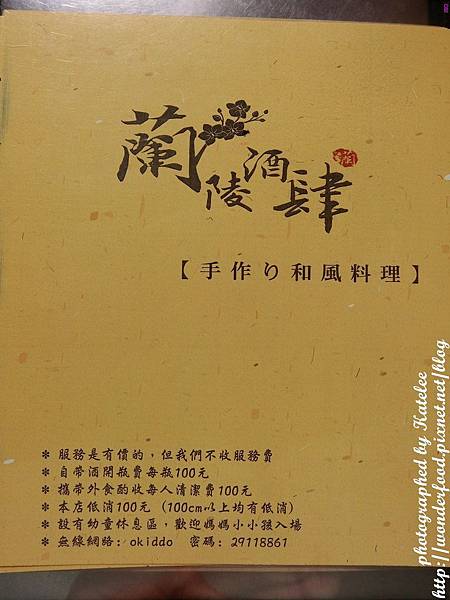 蘭陵酒肆
【手作り和風料理】
* 服務是有價的，但我們不收服務費
* 自帶酒開瓶費每瓶100元
* 攜帶外食酌收每人清潔費100元
* 本店低消100元 (100cm以上均有低消)
* 設有幼童休息區，歡迎媽媽小小孩入場
* 無線網路: okiddo 密碼: 29118861
photographed by Katelee
http://wonderfood.pixnet.net/blog